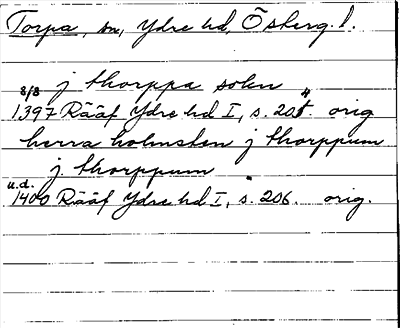 Torpa, sn, Ydre hd, Österg. l.
8/8 j thorppa sokn
1397 Rääf Ydre hd I, s. 205. orig
herra holmsten j thorppum
j. thorppum
u.d.
1400 Rääf Ydre hd I, s. 206. orig.